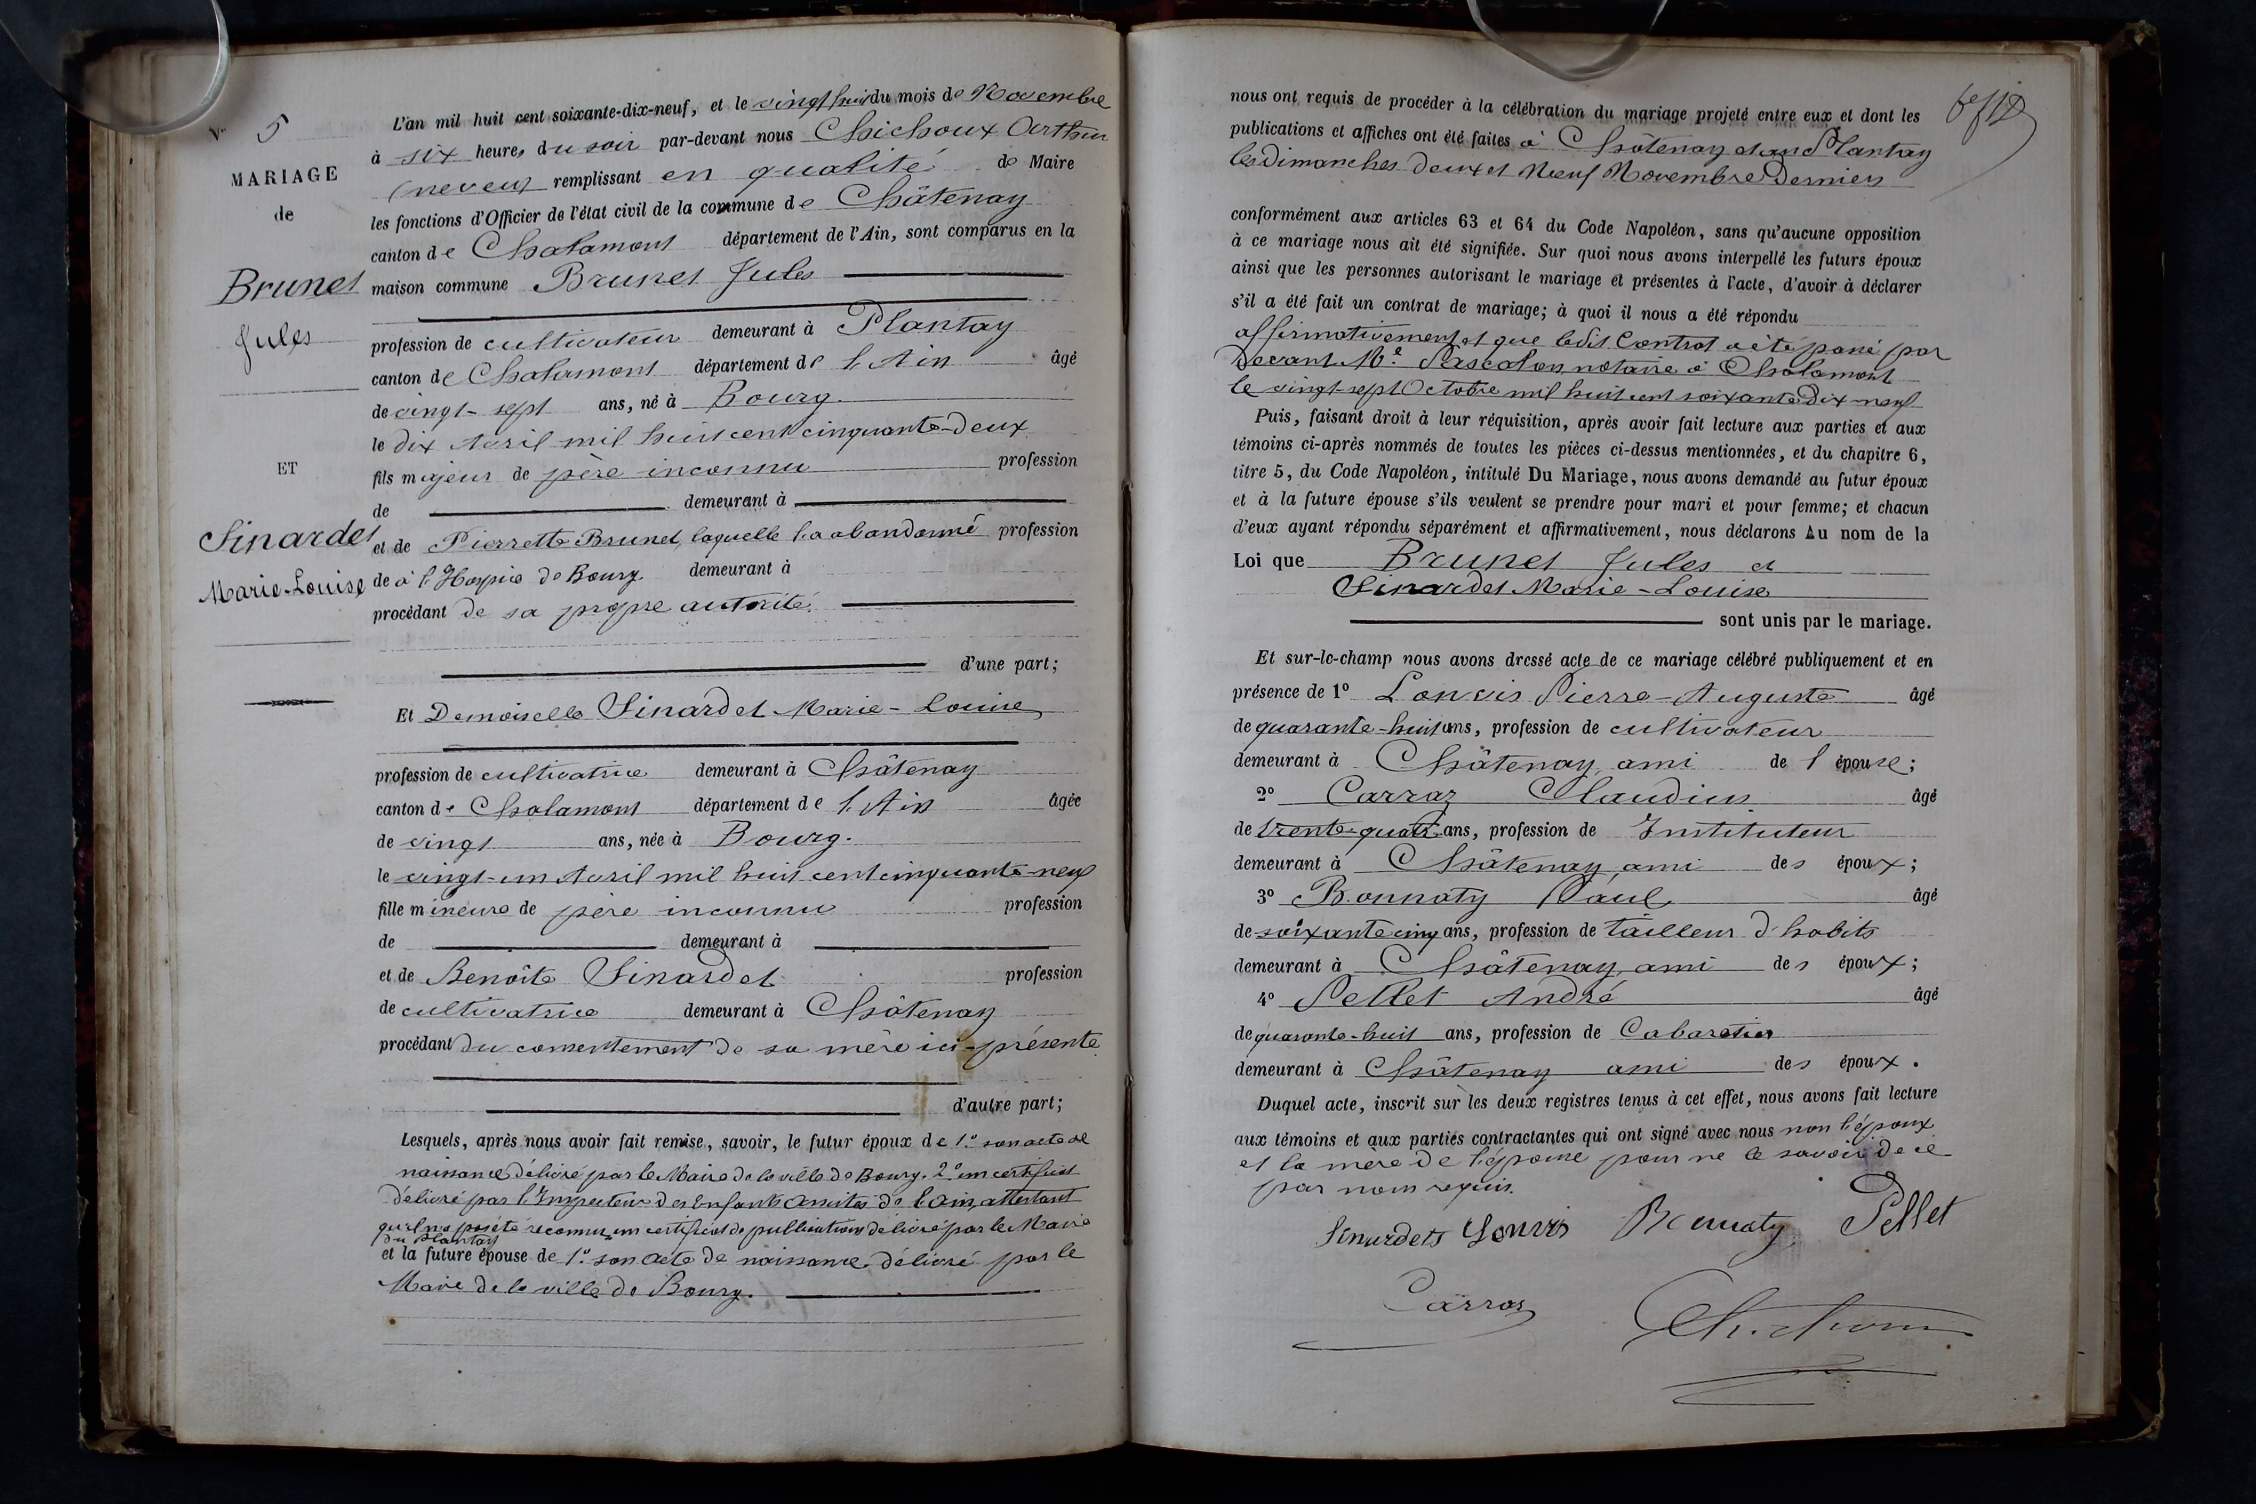 N° 5
MARIAGE
de
Brunet
Jules
ET
Sinardet
Marie-Louise
L'an mil huit cent soixante-dix-neuf, et le vingt huit du mois de Novembre
à six heures du soir par-devant nous Chichoux Arthur
(neveu) remplissant en qualité de Maire
les fonctions d'Officier de l'état civil de la commune de Châtenay
canton de Chalamont département de l'Ain, sont comparus en la
maison commune Brunet Jules
profession de cultivateur demeurant à Plantay
canton de Chalamont département de l'Ain âgé
de vingt-sept ans, né à Bourg
le dix Avril mil huit cent cinquante-deux
fils majeur de père inconnu profession
de demeurant à
et de Pierrette Brunet, laquelle l'a abandonné profession
de à l'Hospice de Bourg demeurant à
procédant de sa propre autorité.
d'une part;
Et Demoiselle Sinardet Marie-Louise
profession de cultivatrice demeurant à Châtenay
canton de Chalamont département de l'Ain âgée
de vingt ans, née à Bourg.
le vingt-un Avril mil huit cent cinquante-neuf
fille mineure de père inconnu profession
de demeurant à
et de Benoîte Sinardet profession
de cultivatrice demeurant à Châtenay
procédant du consentement de sa mère ici-présente
d'autre part;
Lesquels, après nous avoir fait remise, savoir, le futur époux de 1.° son acte de
naissance délivré par le Maire de la ville de Bourg. 2° un certificat
délivré par l'Inspecteur des Enfants Assistés de l'Ain, attestant
qu'il n'a pas été reconnu, un certificat de publications délivré par le Maire
du Plantay
et la future épouse de 1.° son acte de naissance délivré par le
Maire de la ville de Bourg.
nous ont requis de procéder à la célébration du mariage projeté entre eux et dont les
publications et affiches ont été faites à Châtenay et au Plantay
les Dimanches deux et Neuf Novembre Derniers
conformément aux articles 63 et 64 du Code Napoléon, sans qu'aucune opposition
à ce mariage nous ait été signifiée. Sur quoi nous avons interpellé les futurs époux
ainsi que les personnes autorisant le mariage et présentes à l'acte, d'avoir à déclarer
s'il a été fait un contrat de mariage; à quoi il nous a été répondu
affirmativement et que ledit Contrat a été passé par
Devant Me. Pascalon notaire à Chalamont
le vingt-sept Octobre mil huit cent soixante Dix-neuf
Puis, faisant droit à leur réquisition, après avoir fait lecture aux parties et aux
témoins ci-après nommés de toutes les pièces ci-dessus mentionnées, et du chapitre 6,
titre 5, du Code Napoléon, intitulé Du Mariage, nous avons demandé au futur époux
et à la future épouse s'ils veulent se prendre pour mari et pour femme; et chacun
d'eux ayant répondu séparément et affirmativement, nous déclarons Au nom de la
Loi que Brunet Jules et
Sinardet Marie-Louise
sont unis par le mariage.
Et sur-le-champ nous avons dressé acte de ce mariage célébré publiquement et en
présence de 1° Lonvis Pierre-Auguste âgé
de quarante-huit ans, profession de cultivateur
demeurant à Châtenay, ami de l'épouse;
2° Carraz Claudius âgé
de trente-quatre ans, profession de Instituteur
demeurant à Châtenay, ami des époux;
3° Bonnaty Paul âgé
de soixante cinq ans, profession de tailleur d'habits
demeurant à Châtenay, ami des époux;
4° Pellet André âgé
de quarante-huit ans, profession de Cabaretier
demeurant à Châtenay ami des époux.
Duquel acte, inscrit sur les deux registres tenus à cet effet, nous avons fait lecture
aux témoins et aux parties contractantes qui ont signé avec nous non l'époux
et la mère de l'épouse pour ne le savoir de ce
par nous requis.
Sinardets Lonvis Bonnaty Pellet
Carraz